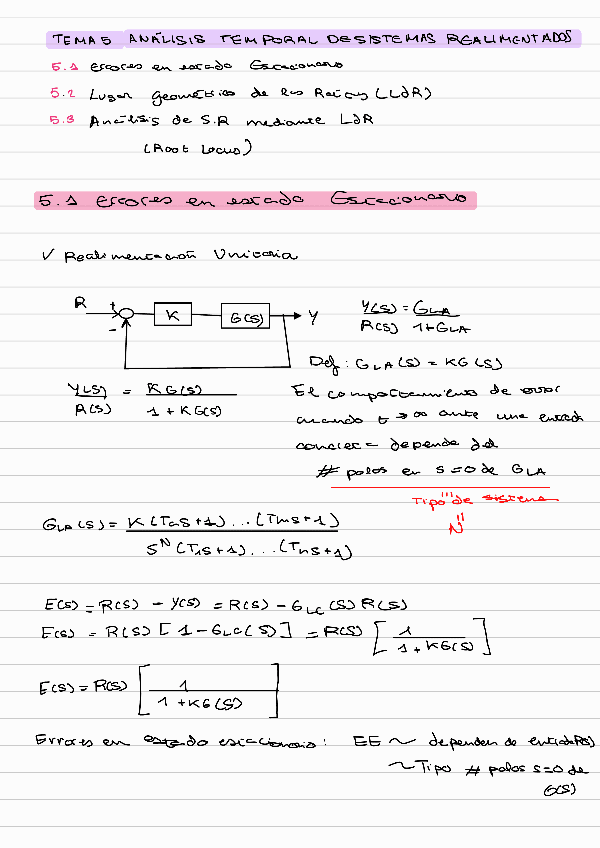 TEMA 5 ANÁLISIS TEMPORAL DE SISTEMAS REALIMENTADOS
5.1 errores en estado Estacionario
5.2 Lugar geométrico de las Raíces (LdR)
5.3 Análisis de S.R mediante LdR
(Root Locus)
5.1 errores en estado Estacionario
✓ Realimentación Unitaria
R + - K G(s) Y
Y(s) = GLA
R(s) 1+GLA
Def: GLA(s) = KG(s)
Y(s) = KG(s)
R(s) 1+KG(s)
El comportamiento de error
cuando t → ∞ ante una entrada
concreta depende del
# polos en s=0 de GLA
Tipo de sistema
"N"
GLA(s) = K(Tas+1)...(Tms+1)
S^N (T1s+1)...(Tns+1)
E(s) = R(s) - Y(s) = R(s) - GLC(s) R(s)
E(s) = R(s) [1 - GLC(s)] = R(s) [1 / 1+KG(s)]
E(s) = R(s) [1 / 1+KG(s)]
Errores en estado estacionario: EE ~ dependen de entrada R(s)
~ Tipo # polos s=0 de
G(s)